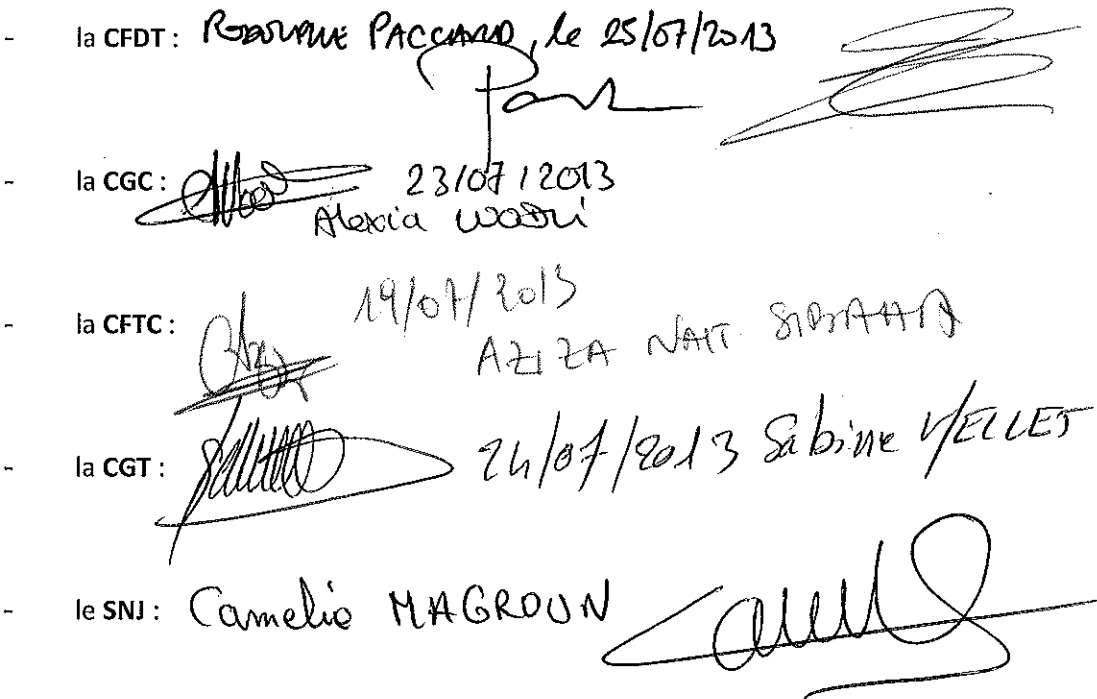 - la CFDT : PACCARD, le 25/07/2013
- la CGC : 23/07/2013
Alexia
- la CFTC : 19/07/2013
AZIZA NAIT
- la CGT : 24/07/2013 Sabine VELLET
- le SNJ : Camelia MAGROUN